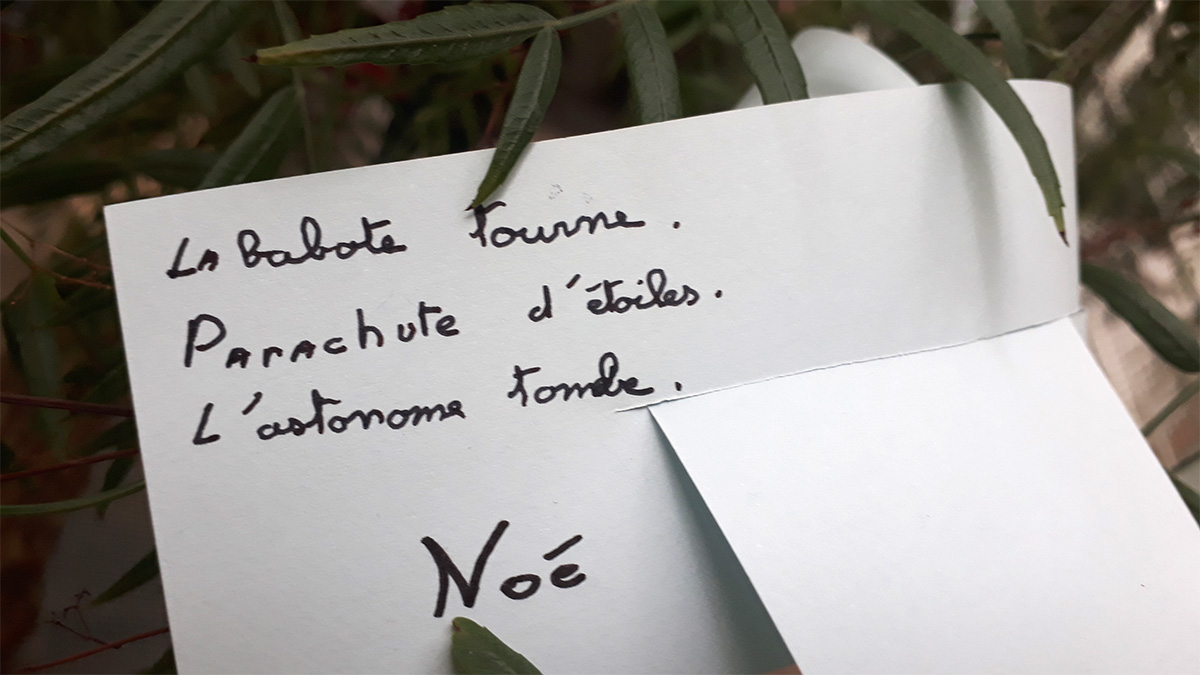 La babote tourne.
Parachute d'étoiles.
L'astonome tombe.
Noé